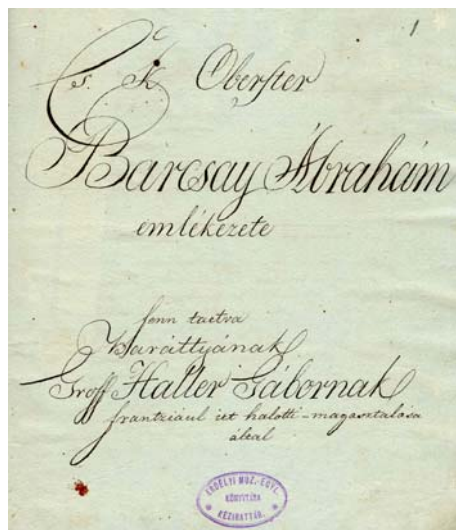 1
Cs. K. Oberster
Barcsay Ábrahám
emlékezete
fenn tartva
Baráttyának
Groff Haller Gábornak
frantziául irt halotti-magasztalása
által
ERDÉLYI MUZ.-EGYL.
KÖNYVTÁRA
KÉZIRATTÁR.